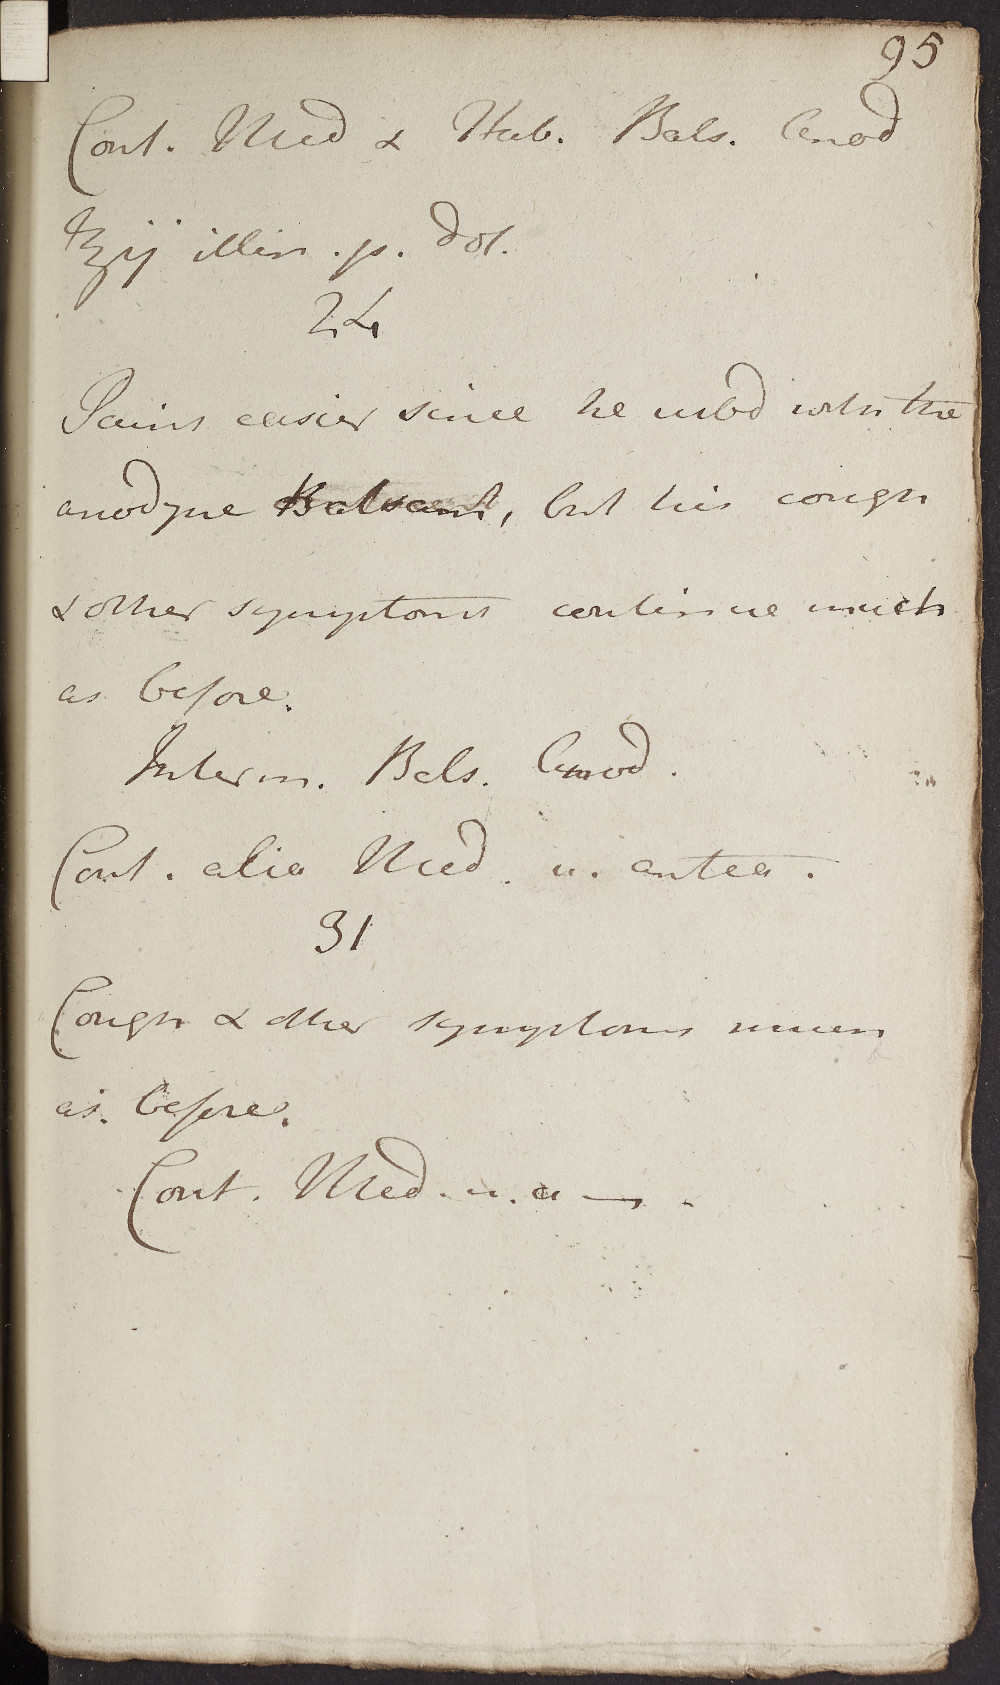 95
Cont. Med & Hab. Bals. Anod
℥ij illin. p. dol.
24
Pains easier since he rubbd with the
anodyne Balsam, but his cough
& other symptoms continue much
as before.
Interm. Bals. Anod.
Cont. alia Med. u. antea.
31
Cough & other symptoms much
as before.
Cont. Med. u. a—.